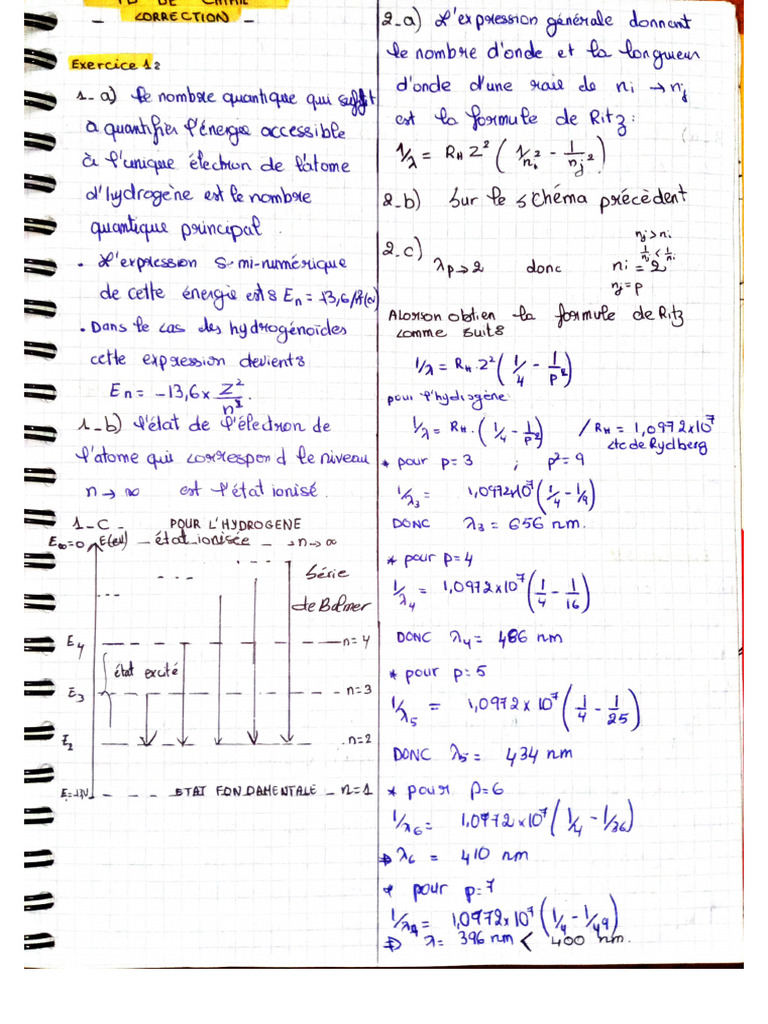 TD DE CHIMIE
_ CORRECTION _
Exercice 1:
1-a) Le nombre quantique qui suffit
à quantifier l'énergie accessible
à l'unique électron de l'atome
d'hydrogène est le nombre
quantique principal.
• L'expression semi-numérique
de cette énergie est: En = -13,6/n²(eV)
• Dans le cas des hydrogénoïdes
cette expression devient:
En = -13,6 x Z²/n².
1-b) l'état de l'électron de
l'atome qui correspond le niveau
n → ∞ est l'état ionisé.
1-C - POUR L'HYDROGENE
E∞=0 E(eV) — état ionisée — → n → ∞
Série
de Balmer
E4 n=4
état excité
E3 n=3
E2 n=2
ETAT FONDAMENTALE _ n=1
2-a) L'expression générale donnant
le nombre d'onde et la longueur
d'onde d'une raie de ni → nj
est la formule de Ritz:
1/λ = RH Z² (1/ni² - 1/nj²)
2-b) Sur le schéma précèdent
nj>ni
1/nj < 1/ni
2-c) λp→2 donc ni = 2
nj = p
Alorson obtien la formule de Ritz
comme suit:
1/λ = RH.Z² (1/4 - 1/p²)
pour l'hydrogène:
1/λ = RH.(1/4 - 1/p²) / RH = 1,0972x10⁷
cte de Rydberg
* pour p=3 ; p²=9
1/λ3 = 1,0972x10⁷ (1/4 - 1/9)
DONC λ3 = 656 nm.
* pour p=4
1/λ4 = 1,0972x10⁷ (1/4 - 1/16)
DONC λ4 = 486 nm
* pour p=5
1/λ5 = 1,0972x10⁷ (1/4 - 1/25)
DONC λ5 = 434 nm
* pour P=6
1/λ6 = 1,0972x10⁷ (1/4 - 1/36)
⇒ λ6 = 410 nm
* pour p=7
1/λ7 = 1,0972x10⁷ (1/4 - 1/49)
⇒ λ = 396 nm < 400 nm.